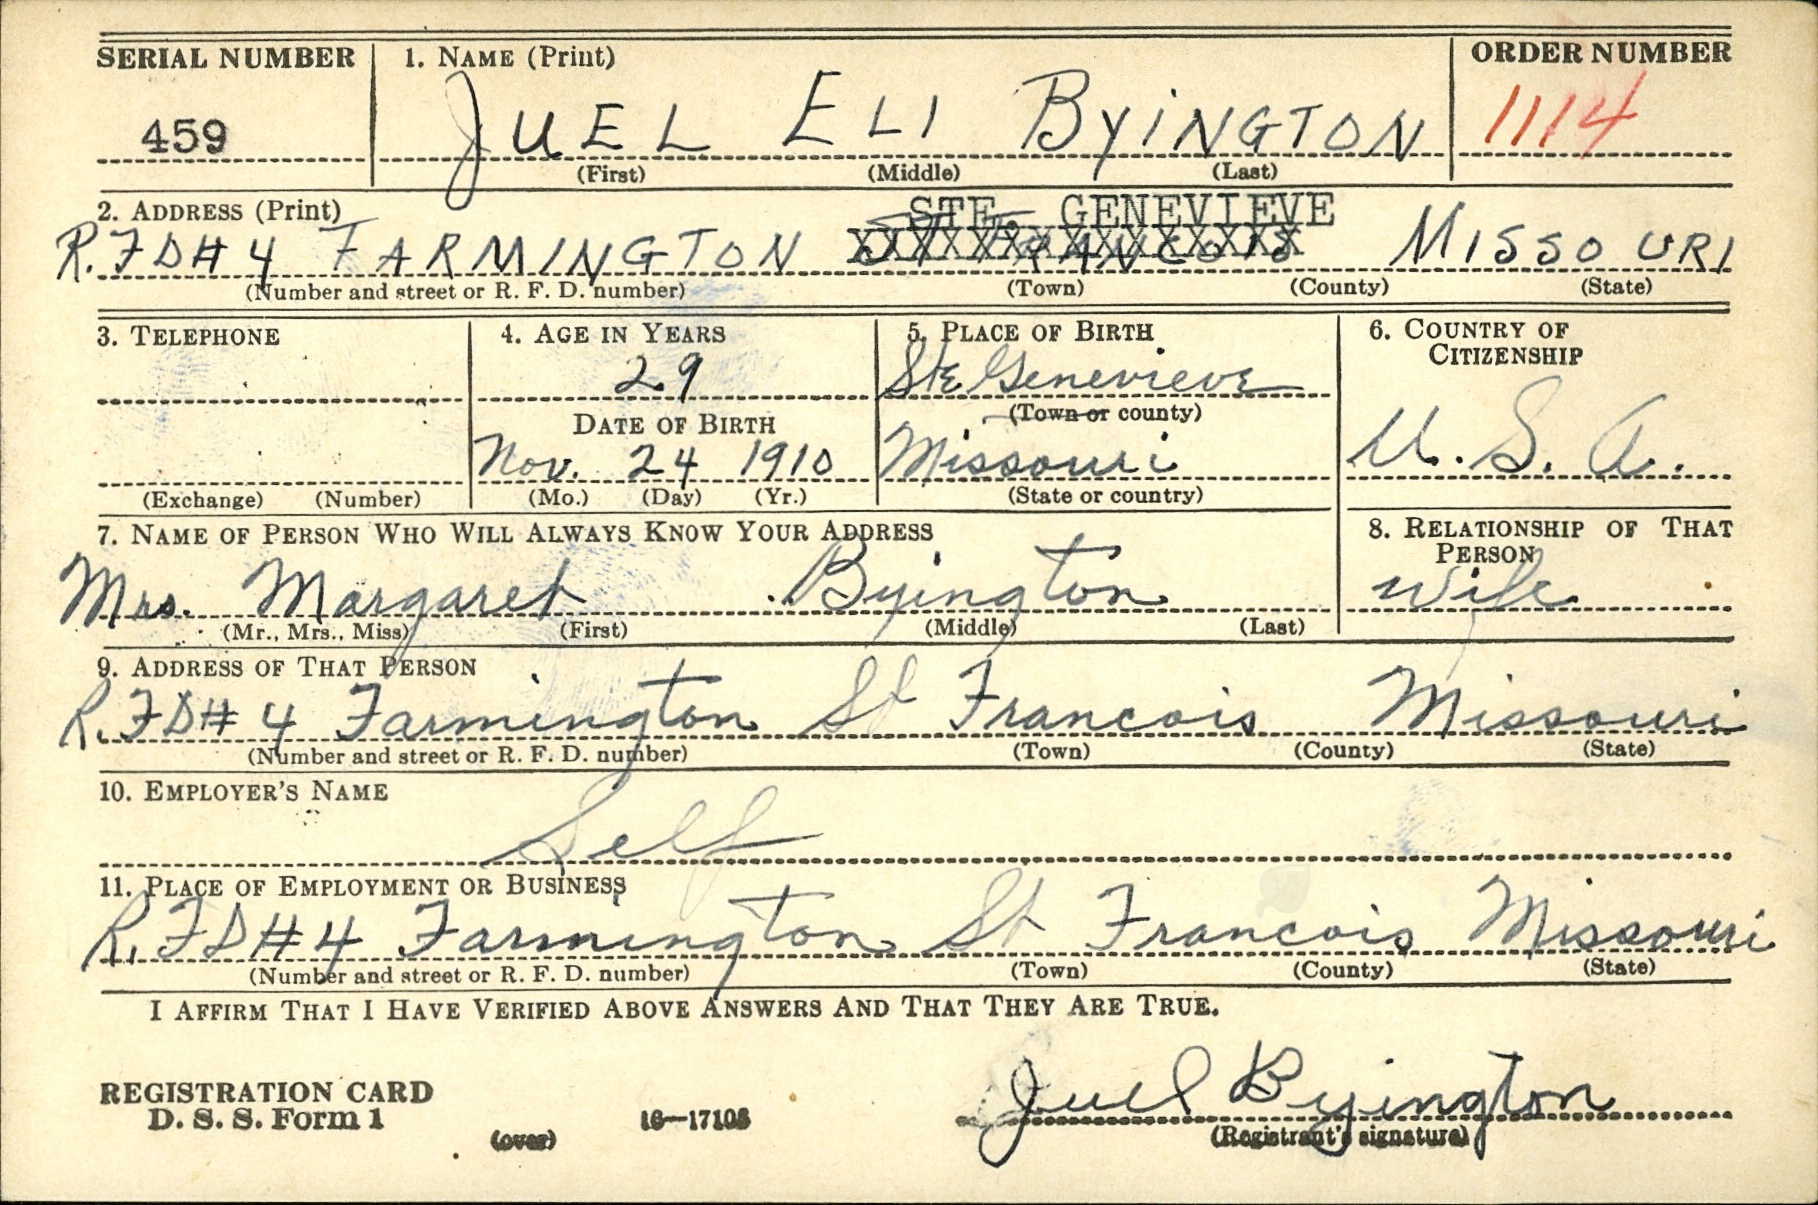 SERIAL NUMBER 1. NAME (Print) ORDER NUMBER
459 JUEL ELI BYINGTON 1114
(First) (Middle) (Last)
2. ADDRESS (Print) STE. GENEVIEVE
R.FD#4 FARMINGTON ST FRANCOIS MISSOURI
(Number and street or R. F. D. number) (Town) (County) (State)
3. TELEPHONE 4. AGE IN YEARS 5. PLACE OF BIRTH 6. COUNTRY OF
CITIZENSHIP
29 Ste Genevieve
DATE OF BIRTH (Town or county)
Nov. 24 1910 Missouri U.S.A.
(Exchange) (Number) (Mo.) (Day) (Yr.) (State or country)
7. NAME OF PERSON WHO WILL ALWAYS KNOW YOUR ADDRESS 8. RELATIONSHIP OF THAT
PERSON
Mrs. Margaret Byington Wife
(Mr., Mrs., Miss) (First) (Middle) (Last)
9. ADDRESS OF THAT PERSON
R.FD#4 Farmington St Francois Missouri
(Number and street or R. F. D. number) (Town) (County) (State)
10. EMPLOYER'S NAME
Self
11. PLACE OF EMPLOYMENT OR BUSINESS
R.FD#4 Farmington St Francois Missouri
(Number and street or R. F. D. number) (Town) (County) (State)
I AFFIRM THAT I HAVE VERIFIED ABOVE ANSWERS AND THAT THEY ARE TRUE.
REGISTRATION CARD Juel Byington
D. S. S. Form 1 (over) 16—17105 (Registrant's signature)